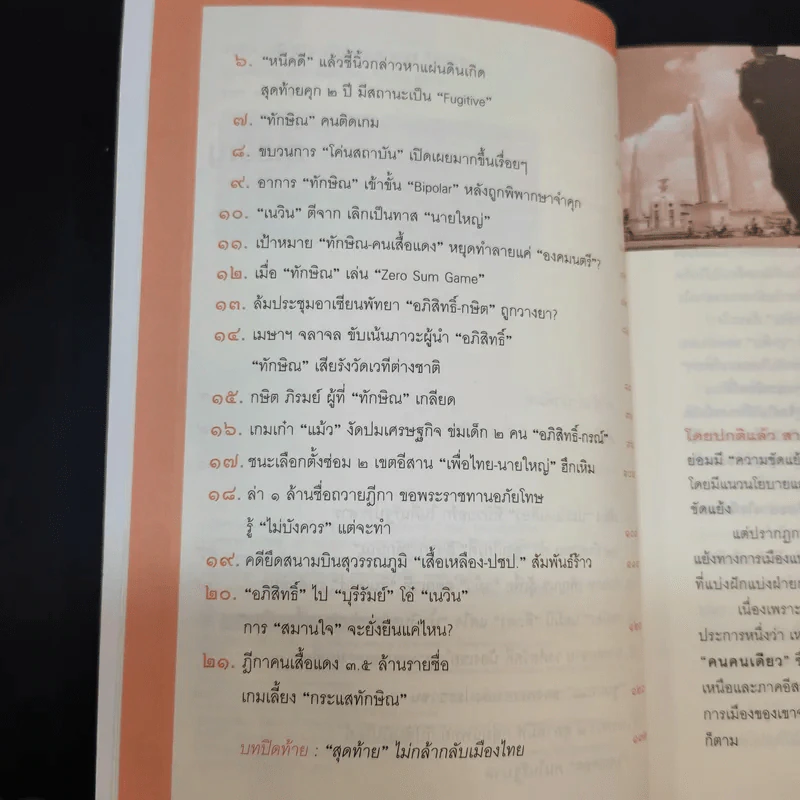 ๖. “หนีคดี” แล้วชี้นิ้วกล่าวหาแผ่นดินเกิด
สุดท้ายคุก ๒ ปี มีสถานะเป็น “Fugitive”
๗. “ทักษิณ” คนติดเกม
๘. ขบวนการ “โค่นสถาบัน” เปิดเผยมากขึ้นเรื่อยๆ
๙. อาการ “ทักษิณ” เข้าขั้น “Bipolar” หลังถูกพิพากษาจำคุก
๑๐. “เนวิน” ตีจาก เลิกเป็นทาส “นายใหญ่”
๑๑. เป้าหมาย “ทักษิณ-คนเสื้อแดง” หยุดทำลายแค่ “องคมนตรี”?
๑๒. เมื่อ “ทักษิณ” เล่น “Zero Sum Game”
๑๓. ล้มประชุมอาเซียนพัทยา “อภิสิทธิ์-กษิต” ถูกวางยา?
๑๔. เมษาฯ จลาจล ขับเน้นภาวะผู้นำ “อภิสิทธิ์”
“ทักษิณ” เสียรังวัดเวทีต่างชาติ
๑๕. กษิต ภิรมย์ ผู้ที่ “ทักษิณ” เกลียด
๑๖. เกมเก๋า “แม้ว” งัดปมเศรษฐกิจ ข่มเด็ก ๒ คน “อภิสิทธิ์-กรณ์”
๑๗. ชนะเลือกตั้งซ่อม ๒ เขตอีสาน “เพื่อไทย-นายใหญ่” ฮึกเหิม
๑๘. ล่า ๑ ล้านชื่อถวายฎีกา ขอพระราชทานอภัยโทษ
รู้ “ไม่บังควร” แต่จะทำ
๑๙. คดียึดสนามบินสุวรรณภูมิ “เสื้อเหลือง-ปชป.” สัมพันธ์ร้าว
๒๐. “อภิสิทธิ์” ไป “บุรีรัมย์” โอ๋ “เนวิน”
การ “สมานใจ” จะยั่งยืนแค่ไหน?
๒๑. ฎีกาคนเสื้อแดง ๓.๕ ล้านรายชื่อ
เกมเลี้ยง “กระแสทักษิณ”
บทปิดท้าย : “สุดท้าย” ไม่กล้ากลับเมืองไทย
โดยปกติแล้ว
ย่อมมี “ความขัดแย้ง
โดยมีแนวนโยบาย
ขัดแย้ง
แต่ปรากฏก
แย้งทางการเมือง
ที่แบ่งฝักแบ่งฝ่าย
เนื่องเพราะ
ประการหนึ่งว่า
“คนคนเดียว”
เหนือและภาคอีส
การเมืองของเขา
ก็ตาม